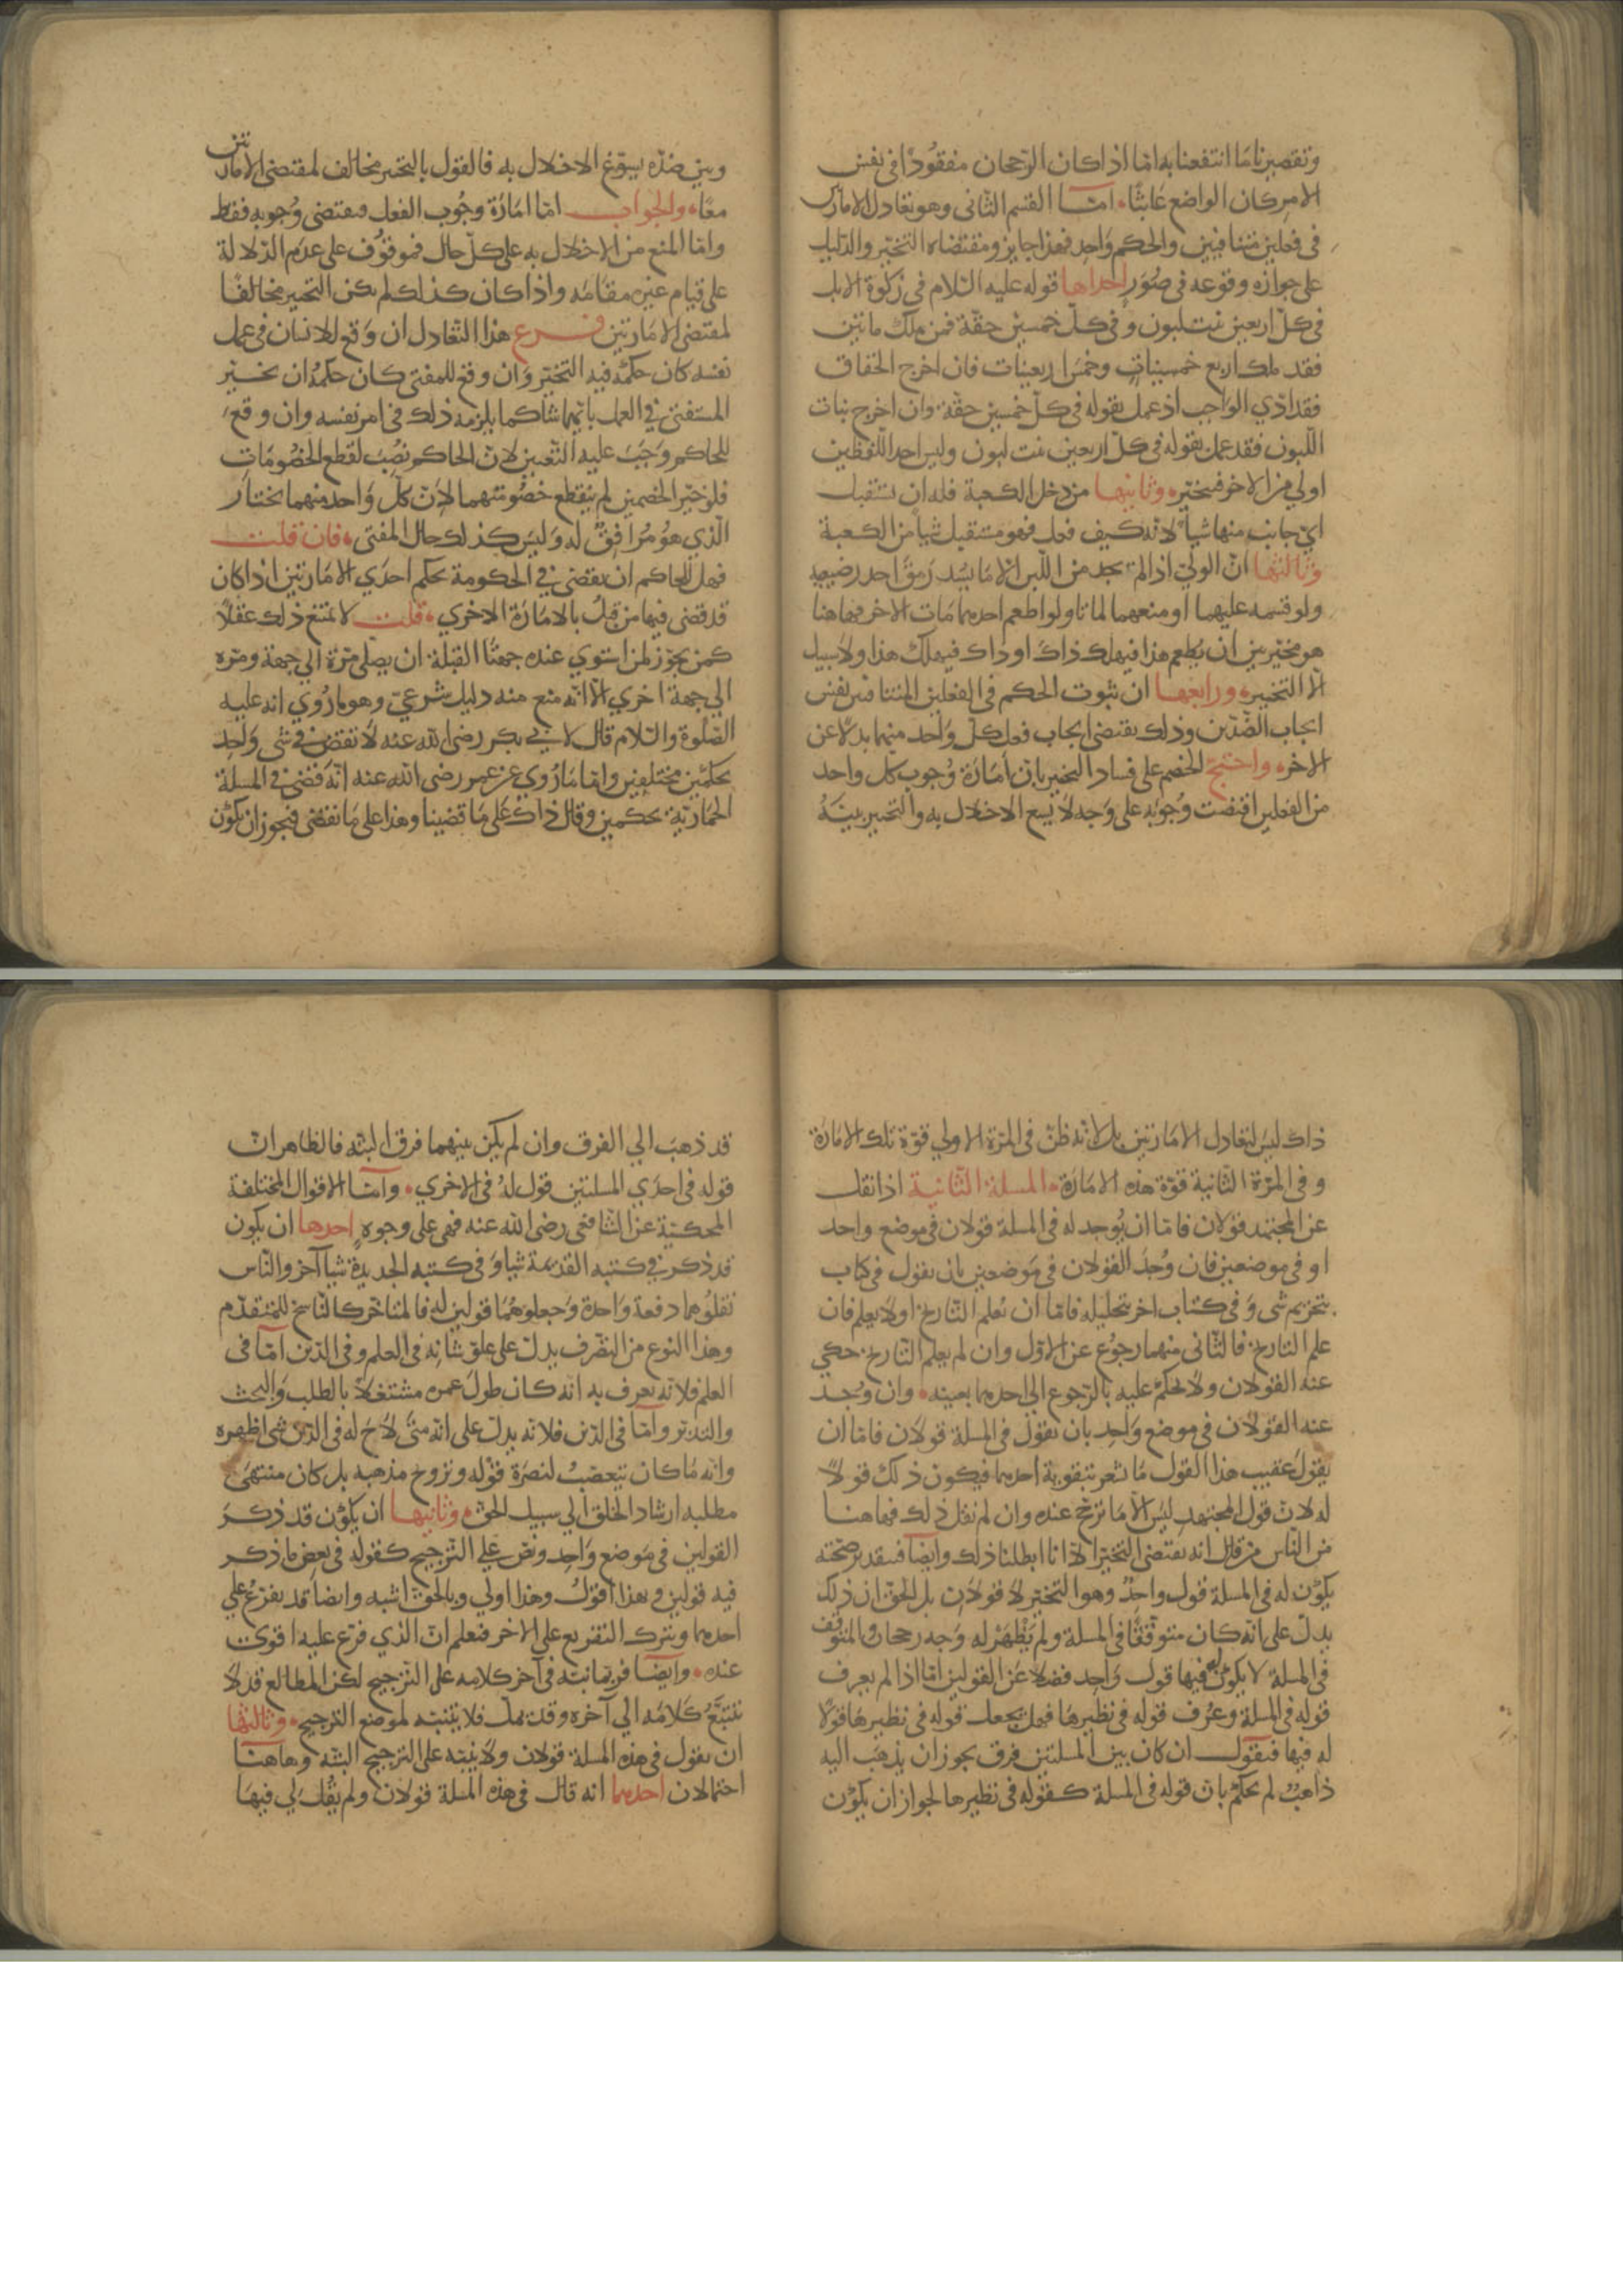 وتقصير نا ما انتفعنا به اما اذا كان الرجحان مفقودًا في نفس
الامر كان الواضع عابثًا. امّا القسم الثاني وهو تعادل الامارتين
في فعلين متنافيين والحكم واحد فهذا جايز ومقتضاه التخيّر والدليل
على جوازه وقوعه في صُوَر احداها قوله عليه السّلام في زكوة الابل
في كلّ اربعين بنت لبون وفي كلّ خمسين حقّة فمن ملك مائتين
فقد ملك اربع خمسينات وخمس اربعينات فان اخرج الحقاق
فقد ادّي الواجب اذ عمل بقوله في كلّ خمسين حقّة وان اخرج بنات
اللّبون فقد عمل بقوله في كلّ اربعين بنت لبون وليس احد اللّفظين
اولي من الاخر فيتخيّر. وثانيها من دخل الكعبة فله ان يستقبل
ايّ جانب منها شيأ لانه كيف فعل فهو مستقبل شيأ من الكعبة
وثالثها انّ الوليّ اذا لم يجد من اللّبن الا ما يسُد رمقَ احد رضيعيه
ولو قسمه عليهما او منعهما لماتا ولو اطعم احدهما مات الاخر فهاهنا
هو مخيّر بين ان يُطعم هذا فيهلك ذاك او ذاك فيهلك هذا ولا سبيل
الّا التخيير. ورابعها ان ثبوت الحكم في الفعلين المتنافيين نفس
ايجاب الضّدّين وذلك يقتضي ايجاب فعل كلّ واحد منهما بدلًا عن
الاخر. واحتجّ الخصم على فساد التخيير بانّ امارة وُجوب كل واحد
من الفعلين اقتضت وُجوبَه على وَجه لا يسع الاخلال به والتخيير بينَهُ
وبين ضدّه يسوّغ الاخلال به فالقول بالتخيير مخالف لمقتضى الامارتين
معًا. والجواب امّا امارة وجُوب الفعل فتقتضى وُجوبه فقط
وامّا المنع من الاخلال به على كلّ حال فموقوف على عدم الدّلالة
على قيام غيره مقامَه واذا كان كذلك لم يكن التخيير مخالفًا
لمقتضى الامارتين فرع هذا التعادل ان وَقع للانسان في عمل
نفسه كان حكمُه فيه التخيّر وان وقع للمفتى كان حكمُه ان يخيّر
المستفتى في العمل بايّهما شا كما يلزمه ذلك في امر نفسه وان وقع
للحاكم وَجَبَ عليه التعيين لانّ الحاكم نُصِبَ لقطع الخصُومات
فلو خيّر الخصمين لم ينقطع خصُومتهما لانّ كلّ واحد منهما يختار
الّذي هو مُرافِقٌ له وليسَ كذلك حال المفتى. فان قلت
فهل للحاكم ان يقضى في الحكومة بحكم احدَي الامارتين اذا كان
قد قضى فيها من قبلُ بالامارة الاخري. قلت لا يمتنع ذلك عقلًا
كمن يجوّز لمن استوي عنده جهتا القبلة ان يصلّى مرّة الي جهة ومرّة
الي جهة اخري الّا انّه منع منه دليل شرعيّ وهو ما رُوي انه عليه
الصّلوة والسّلام قال لابي بكر رضى الله عنه لا تقضِ في شى واحد
بحكمين مختلفين وامّا ما رُوي عن عمر رضى الله عنه انّه قضى في المسلة
الحماريّة بحكمين وقال ذاك على ما قضينا وهذا على ما نقضى فيجوز ان يكون
ذاك ليسَ لتعادل الامارتين بل لانّه ظنّ في المرّة الاولي قوّة تلك الامارة
وفي المرّة الثّانية قوّة هذه الامارة. المسلة الثّانية اذا نقل
عن المجتهد قولان فامّا ان يُوجد له في المسلة قولان في موضع واحد
او في موضعين فان وُجدَ القولان في موضعين بان يقول في كتاب
بتحريم شى وفي كتاب اخر بتحليله فامّا ان يُعلم التّاريخ او لا يعلم فان
علم التاريخ فالثّانى منهما رجُوع عن الاوّل وان لم يعلم التّاريخ حكي
عنه القولان ولا يحكم عليه بالرّجوع الي احدهما بعينه. وان وُجد
عنه القولان في موضع واحِد بان يقول في المسلة قولان فامّا ان
يقولَ عقيب هذا القول ما يشعر بتقوية احدهما فيكون ذلك قولًا
له لانّ قول المجتهد ليس الّا ما ترجّح عنده وان لم نقل ذلك فهاهنا
من النّاس من قال انه يقتضى التخيّر الّا انا ابطلنا ذلك وايضًا فبتقدير صحّته
يكون له في المسلة قول واحدٌ وهو التخيّر لا قولان بل الحق ان ذلك
يدلّ على انّه كان متوقّفًا في المسلة ولم يَظْهر له وجه رجحان والمتوقّف
في المسلة لا يكون له فيها قول واحِد فضلًا عن القولين امّا اذا لم يعرف
قوله في المسلة وعُرف قوله في نظيرها فهل يجعل قوله في نظيرها قولًا
له فيها فنقول ان كان بين المسلتين فرق يجوز ان يذهبَ اليه
ذاهبٌ لم يحكم بانّ قوله في المسلة كقوله في نظيرها لجواز ان يكون
قد ذهبَ الي الفرق وان لم يكن بينهما فرق البتّه فالظاهر انّ
قوله في احدَي المسلتين قول له في الاخري. وامّا الاقوال المختلفة
المحكيّة عن الشافعى رضى الله عنه فهى على وجوهٍ احدها ان يكون
قد ذكر في كتبه القديمة شيا وَفي كتبه الجديدة شيا آخر والنّاس
نقلُوهما دفعة واحدة وجعلوهُما قولين له فالمتاخّر كالنّاسخ للمتقدّم
وهذا النوع من التصّرف يدلّ على علوّ شانه في العلم وفي الدّين امّا في
العلم فلانّه يعرف به انّه كان طول عمره مشتغلًا بالطلب والبحث
والتدبّر وامّا في الدّين فلانّه يدلّ على انّه متى لاحَ له في الدّين شى اظهره
وانّه ما كان يتعصّبُ لنصرة قوله وترويج مذهبه بل كان منتهى
مطلبه ارشاد الخلق الي سبيل الحقّ. وثانيها ان يكون قد ذكر
القولين في موضع واحد ونصّ علي التّرجيح كقوله في بعض ما ذكر
فيه قولين وبهذا اقولُ وهذا اولي وبالحق اشبه وايضًا قد يفرّعُ علي
احدهما ويترك التفريع على الاخر فيعلم انّ الذي فرّع عليه اقوى
عنده. وايضًا فربّما نبّه في آخر كلامه على التّرجيح لكن المطالع قد لا
يتتبّعُ كلامَه الي آخره وقد يملّ فلا يتنبّه لموضع الترجيح. وثالثها
ان يقول في هذه المسلة قولان ولا ينبّه على التّرجيح البتّه وهاهنا
احتمالان احدهما انه قال في هذه المسلة قولان ولم يقُل لي فيها